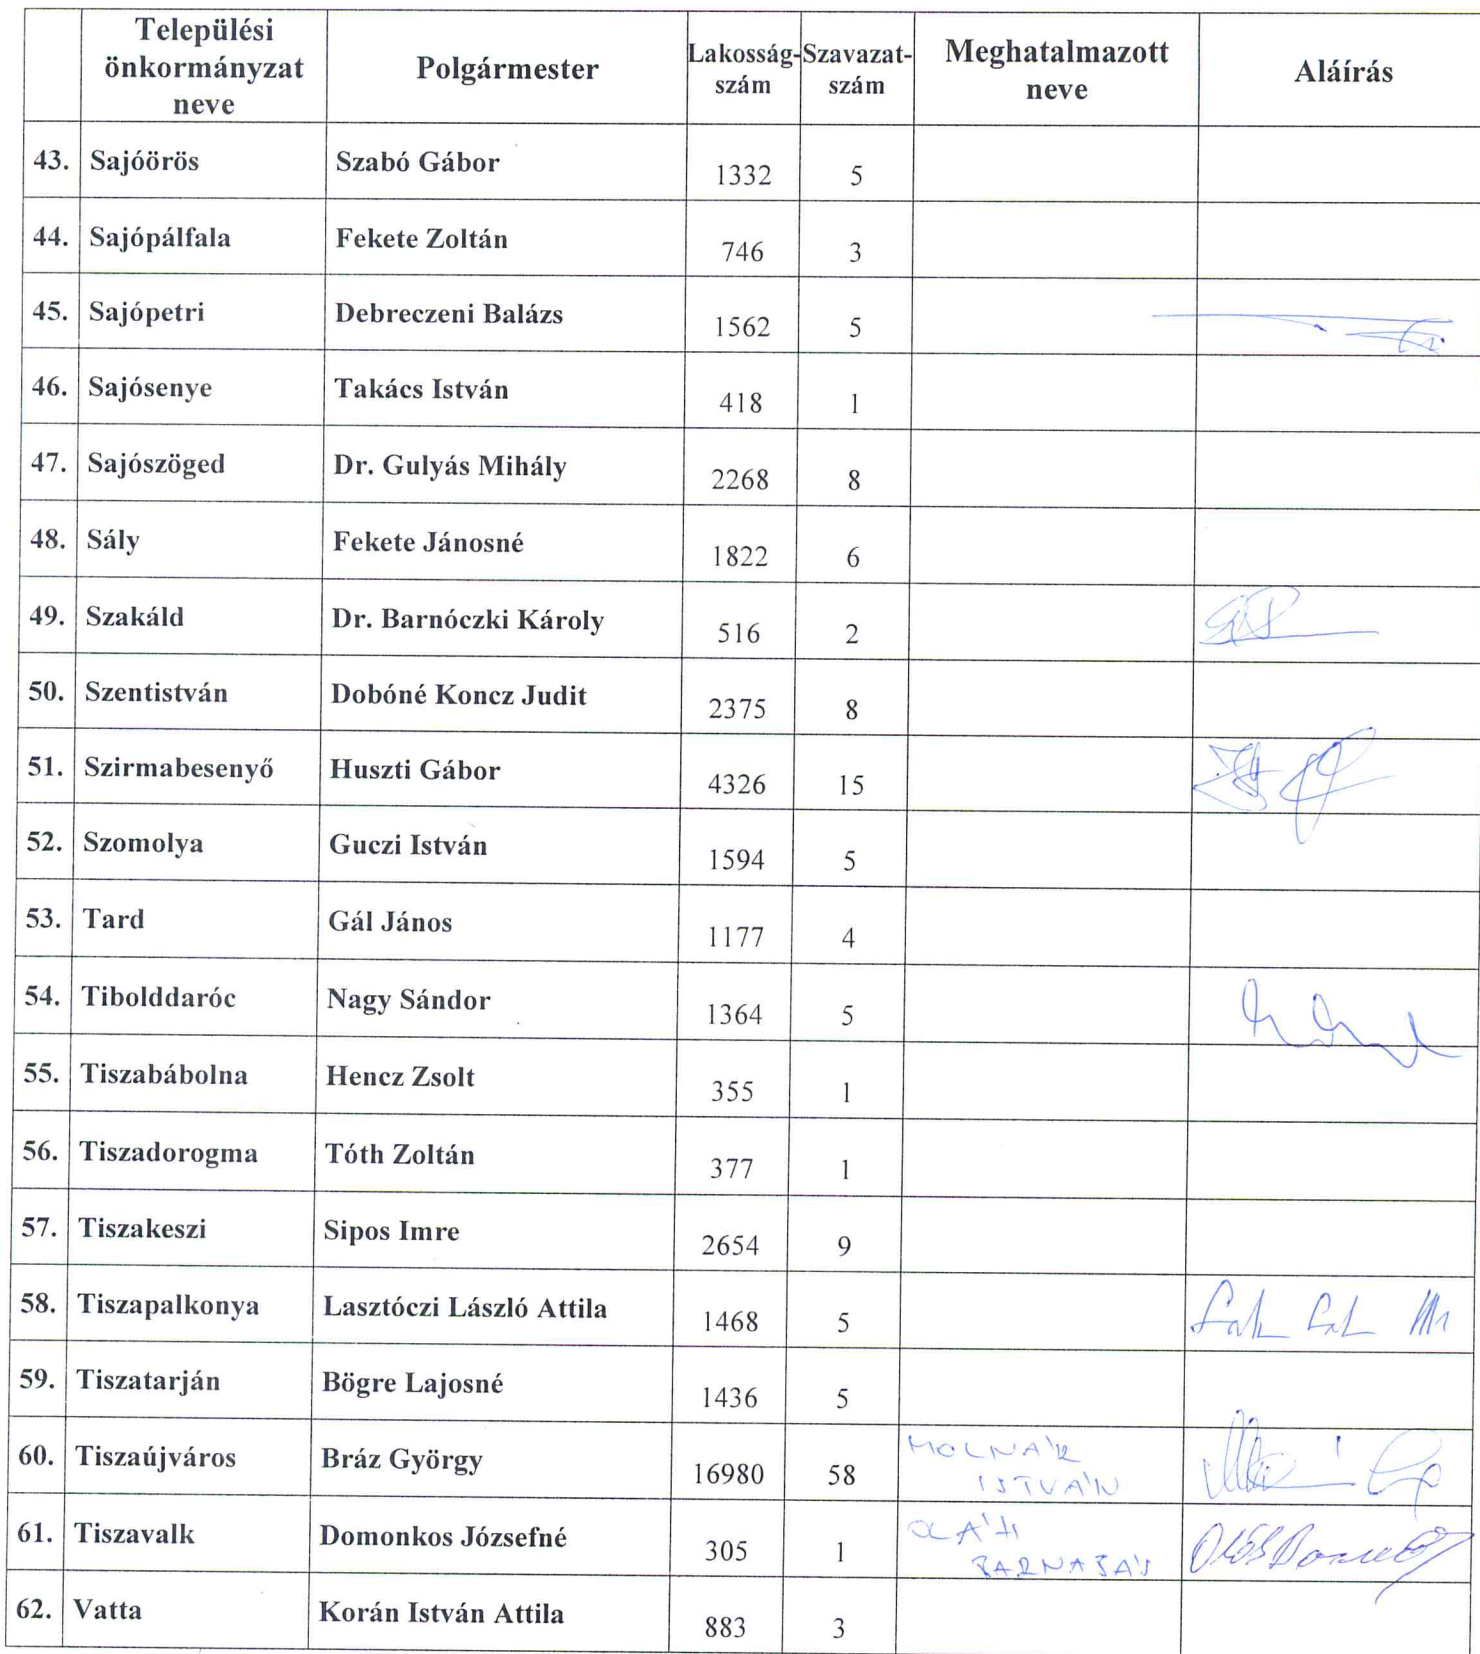 Települési önkormányzat neve Polgármester Lakosság-szám Szavazat-szám Meghatalmazott neve Aláírás
43. Sajóörös Szabó Gábor 1332 5
44. Sajópálfala Fekete Zoltán 746 3
45. Sajópetri Debreczeni Balázs 1562 5
46. Sajósenye Takács István 418 1
47. Sajószöged Dr. Gulyás Mihály 2268 8
48. Sály Fekete Jánosné 1822 6
49. Szakáld Dr. Barnóczki Károly 516 2
50. Szentistván Dobóné Koncz Judit 2375 8
51. Szirmabesenyő Huszti Gábor 4326 15
52. Szomolya Guczi István 1594 5
53. Tard Gál János 1177 4
54. Tibolddaróc Nagy Sándor 1364 5
55. Tiszabábolna Hencz Zsolt 355 1
56. Tiszadorogma Tóth Zoltán 377 1
57. Tiszakeszi Sipos Imre 2654 9
58. Tiszapalkonya Lasztóczi László Attila 1468 5
59. Tiszatarján Bögre Lajosné 1436 5
60. Tiszaújváros Bráz György 16980 58 MOLNÁR ISTVÁN
61. Tiszavalk Domonkos Józsefné 305 1 OLÁH BARNABÁS
62. Vatta Korán István Attila 883 3